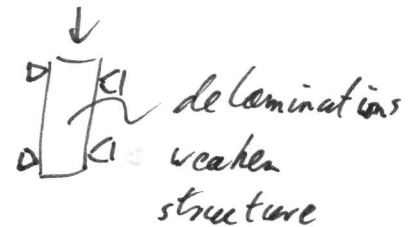 delaminations
weaken
structure